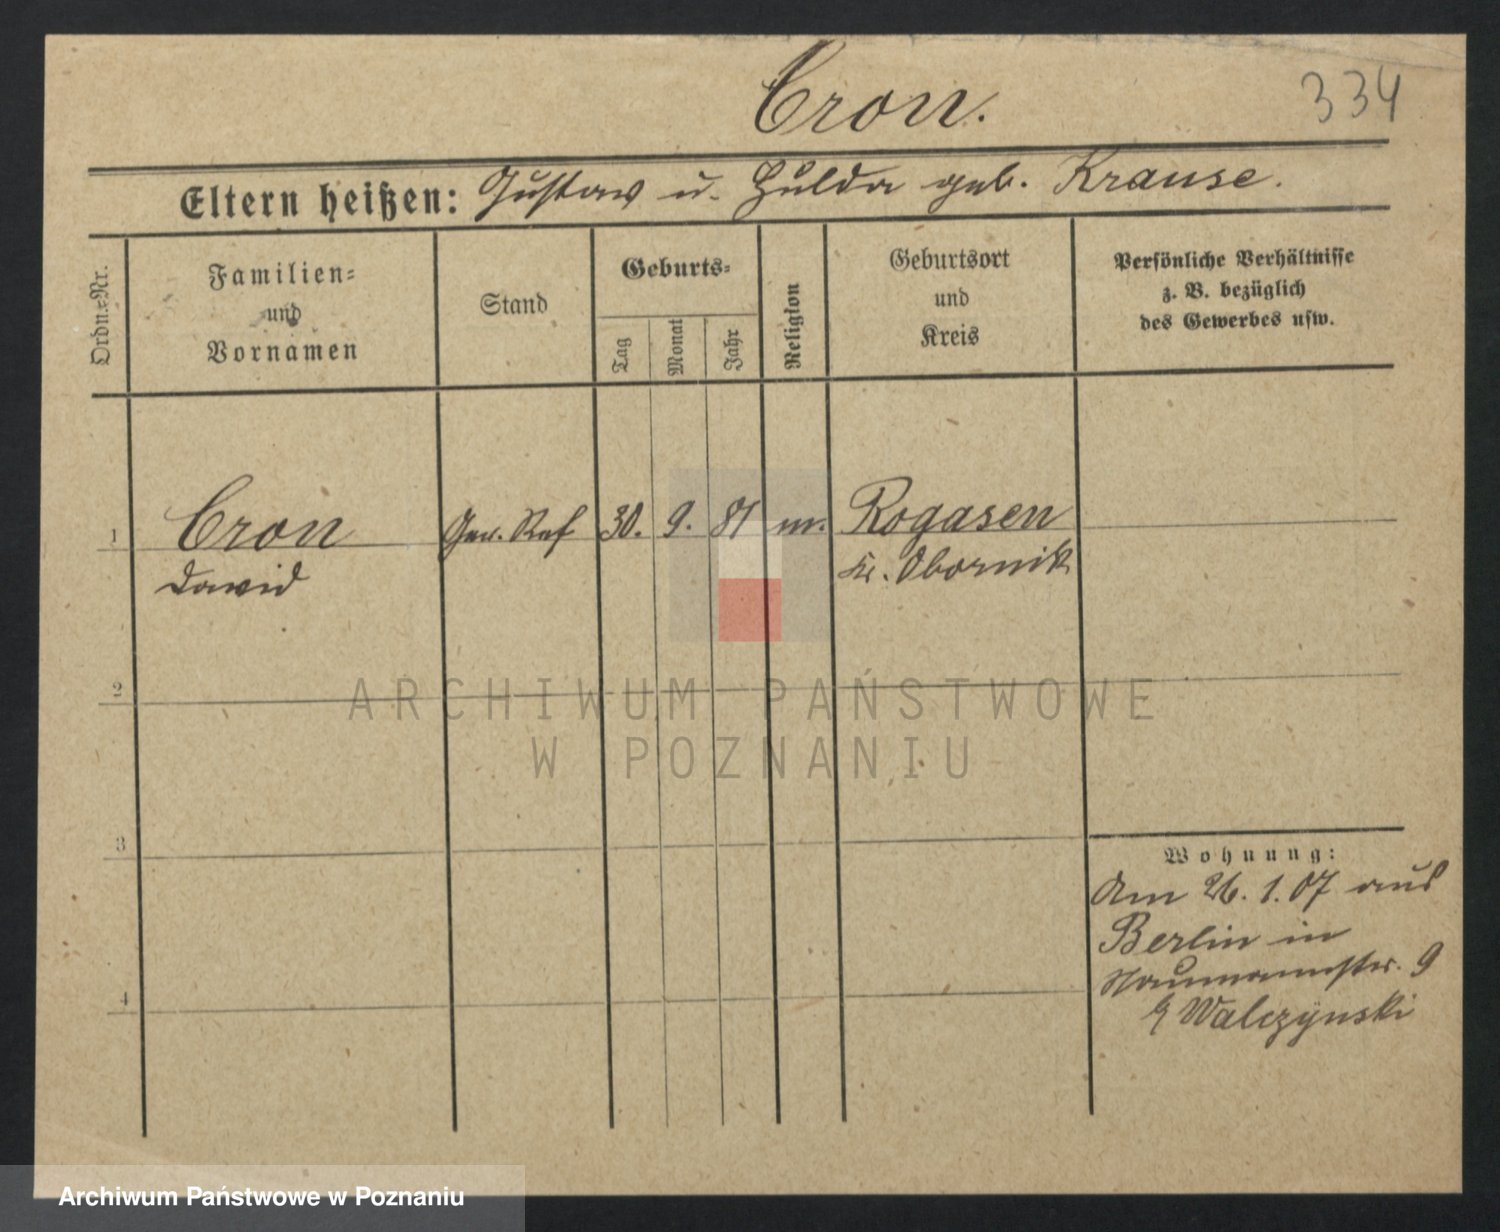 Cron.
334
Eltern heißen: Gustav u. Hulda geb. Krause.
Ordn.-Nr.
Familien-
und
Vornamen
Stand
Geburts-
Tag
Monat
Jahr
Religion
Geburtsort
und
Kreis
Persönliche Verhältnisse
z. B. bezüglich
des Gewerbes usw.
1
Cron
David
Ger. Ref
30.
9.
81
m.
Rogasen
Kr. Obornik
2
3
4
Wohnung:
Am 26.1.07 aus
Berlin in
Naumannstr. 9
Walczynski
ARCHIWUM PAŃSTWOWE
W POZNANIU
Archiwum Państwowe w Poznaniu